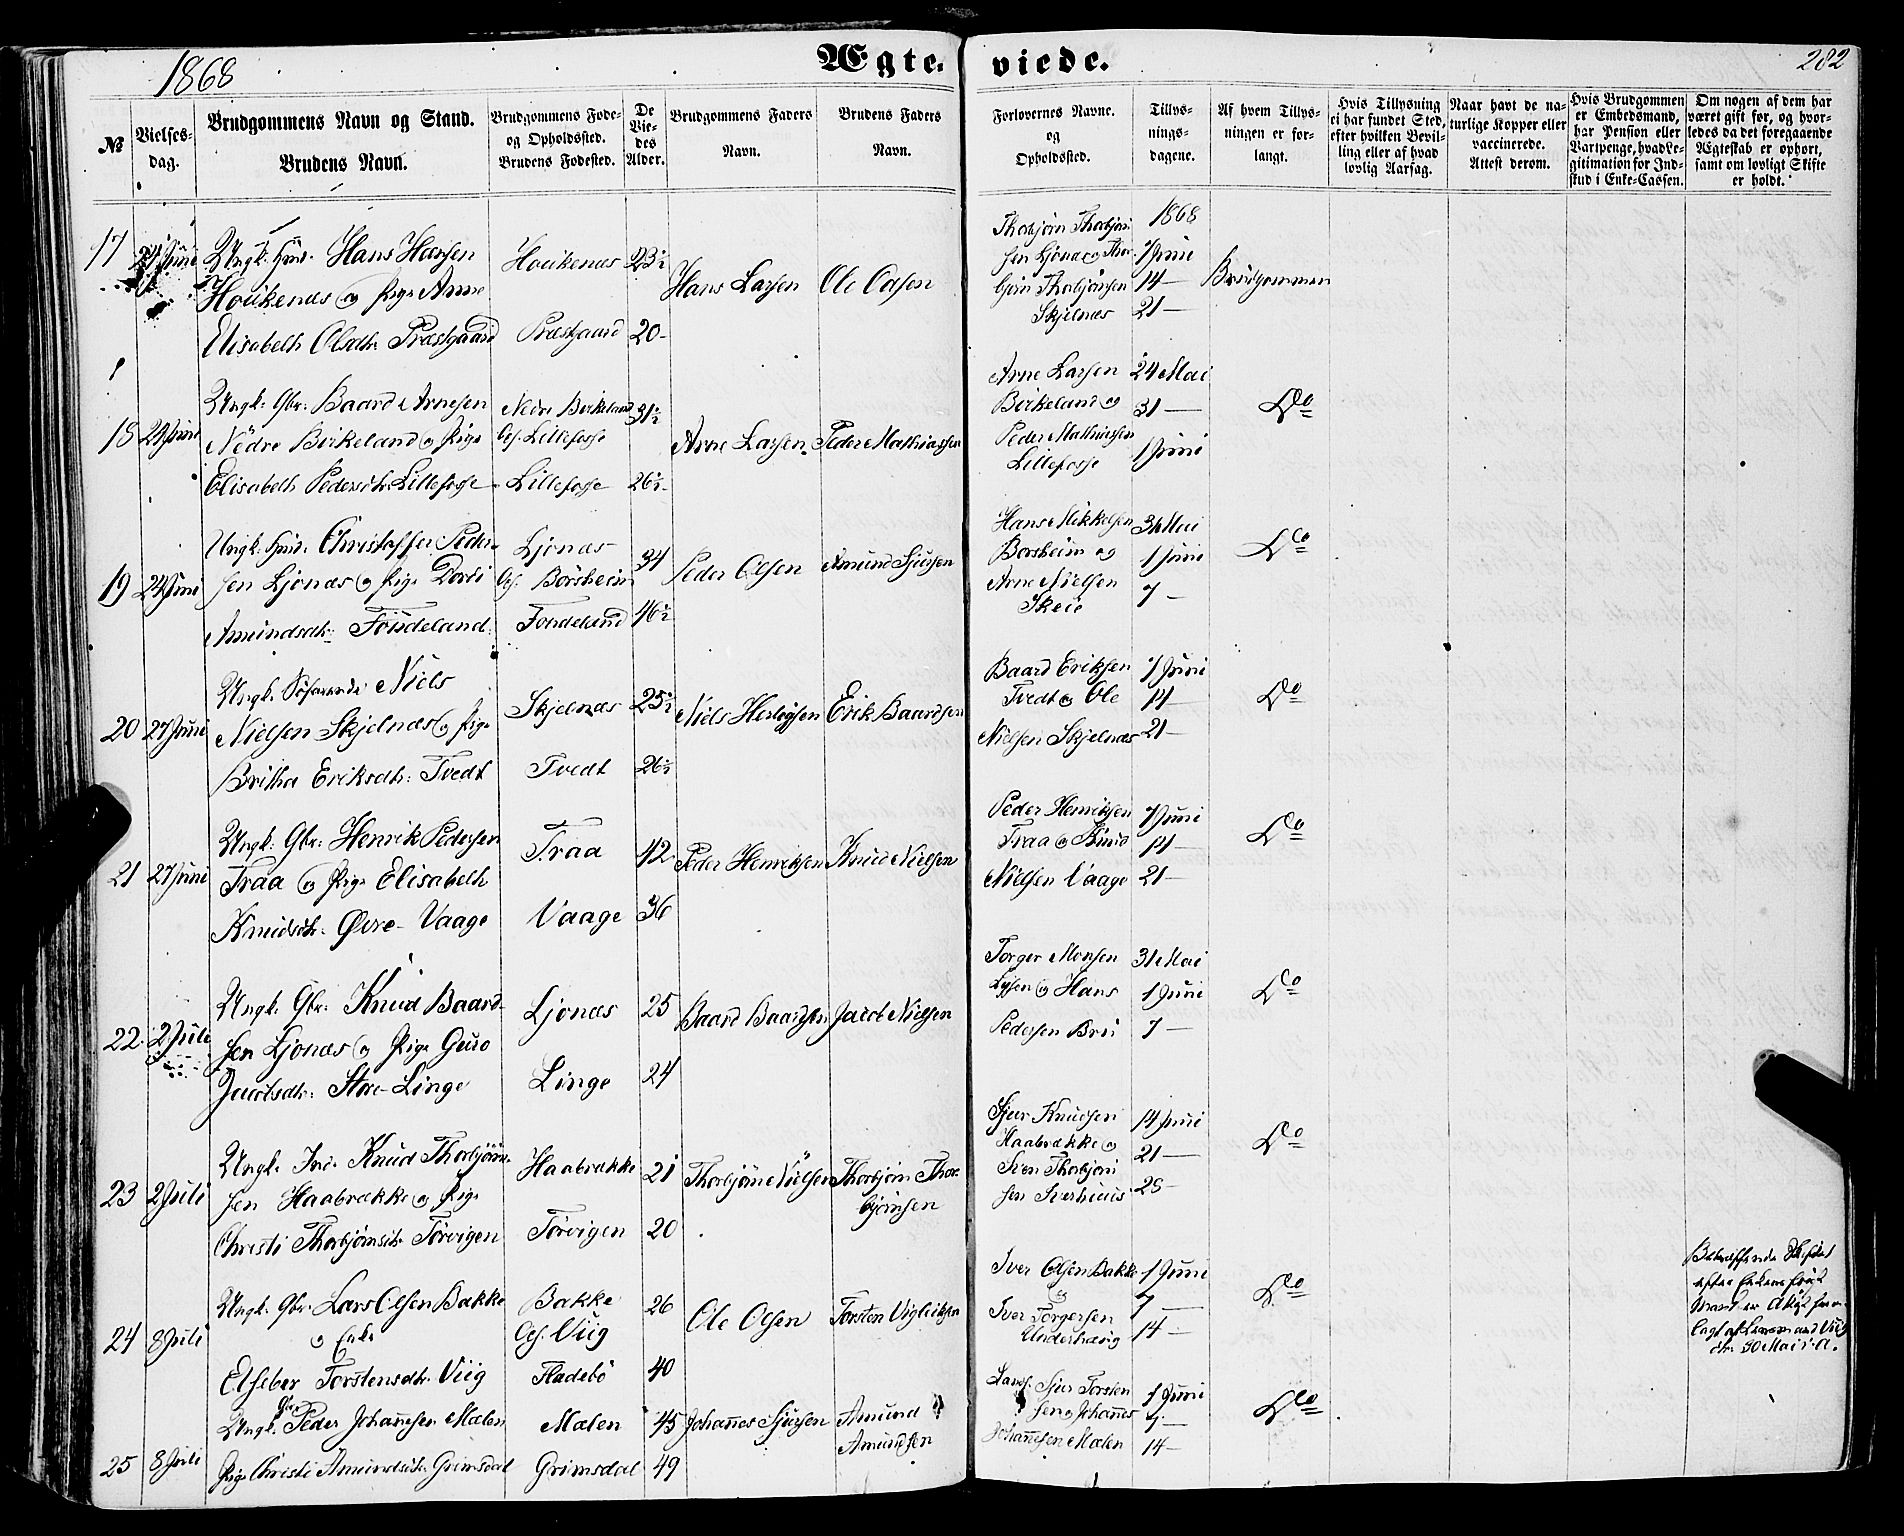 1868
Ægte-
viede.
282
№
Vielses-
dag.
Brudgommens Navn og Stand.
Brudens Navn.
Brudgommens Føde-
og Opholdssted.
Brudens Fødested.
De
Vie-
des
Alder.
Brudgommens Faders
Navn.
Brudens Faders
Navn.
Forlovernes Navne.
og
Opholdssted.
Tillys-
nings-
dagene.
Af hvem Tillys-
ningen er for-
langt.
Hvis Tillysning
ei har fundet Sted,
efter hvilken Bevil-
ling eller af hvad
lovlig Aarsag.
Naar havt de na-
turlige Kopper eller
vaccinerede.
Attest derom.
Hvis Brudgommen
er Embedsmand,
har Pension eller
Vartpenge, hvad Le-
gitimation for Ind-
skud i Enke-Cassen.
Om nogen af dem har
været gift før, og hvor-
ledes da det foregaaende
Ægteskab er ophørt,
samt om lovligt Skifte
er holdt.
17
Juni
Ungk. Hans Hansen
Houkenæs og Pige Anne
Elisabeth Olsdtr. Præstgaard
Houkenæs
Præstgaard
23½
20
Hans Larsen
Ole Olsen
Thorbjørn Thorbjørn
sen Ljonæs og Thor
bjørn Thorbjørnsen
Skjelnæs
1868
7 Juni
14 —
21 —
Brudgommen
18
24 Juni
Ungk. Gbr. Baard Arnesen
Nedre Birkeland og Pige
Elisabeth Pedersdtr. Lillefosse
Nedre Birkeland
Lillefosse
Lillefosse
31½
26½
Arne Larsen
Peder Mathiassen
Arne Larsen
Birkeland og
Peder Mathiassen
Lillefosse
24 Mai
31 —
1 Juni
Do
19
24 Juni
Ungk. Christoffer Peder-
sen Ljonæs og Pige Dordi
Amundsdtr. Tondeland
Ljonæs
Borsheim
Tondeland
34
46½
Peder Olsen
Amund Sjursen
Hans Mikkelsen
Borsheim og
Arne Nielsen
Skeie
31 Mai
1 Juni
7 —
Do
20
27 Juni
Ungk. Søfarende Niels
Nielsen Skjelnæs og Pige
Britha Eriksdtr. Tvedt
Skjelnæs
Tvedt
25½
26½
Niels Herlogsen
Erik Baardsen
Baard Eriksen
Tvedt og Ole
Nielsen Skjelnæs
7 Juni
14 —
21 —
Do
21
27 Juni
Ungk. Gbr. Henrik Pedersen
Traa og Pige Elisabeth
Knudsdtr. Øvre-Vaage
Traa
Vaage
42
36
Peder Henriksen
Knud Nielsen
Peder Henriksen
Traa og Knud
Nielsen Vaage
7 Juni
14 —
21 —
Do
22
2 Juli
Ungk. Gbr. Knud Baard-
sen Ljonæs og Pige Guro
Jacobsdtr. Store-Linge
Ljonæs
Linge
25
24
Baard Baardsen
Jacob Nielsen
Torger Monsen
Lyssen og Hans
Pedersen Bru
31 Mai
1 Juni
7 —
Do
23
2 Juli
Ungk. Knud Thorbjørn-
sen Haabrække og Pige
Christi Thorbjørnsdtr. Tørvigen
Haabrække
Tørvigen
21
20
Thorbjørn Nielsen
Thorbjørn Thor-
bjørnsen
Sjur Knudsen
Haabrække og
Sven Thorbjørn
sen
14 Juni
21 —
28 —
Do
24
8 Juli
Ungk. Gbr. Lars Olsen Bakke
og Enke
Elseber Torstensdtr. Viig
Bakke
Viig
Fladebø
26
40
Ole Olsen
Torsten Vigleiksen
Iver Olsen Bakke
og
Iver Torgersen
Underhaug
1 Juni
7 —
14 —
Do
Skiftet
efter Enkens
Mand er
lagt af Lensmand Viig
dtr. 30 Mai d. A.
25
8 Juli
Ungk. Gbr. Peder Johannesen Mælen
Pige Christi Amundsdtr. Grimsdal
Mælen
Grimsdal
45
49
Johannes Sjursen
Amund
Amundsen
Sjur Torsten
sen og Johannes
Johannesen Mælen
1 Juni
7 —
14 —
Do